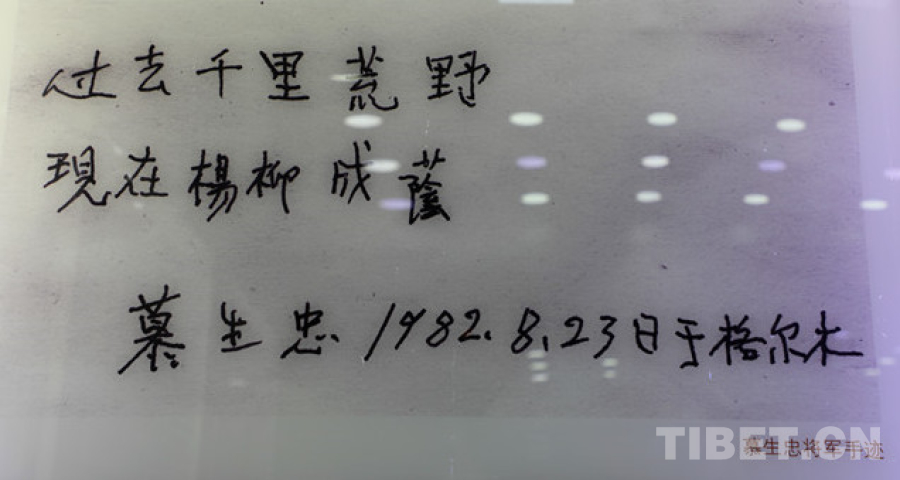 过去千里荒野
現在楊柳成蔭
慕生忠 1982.8.23日于格尔木
TIBET.CN
慕生忠将军手迹